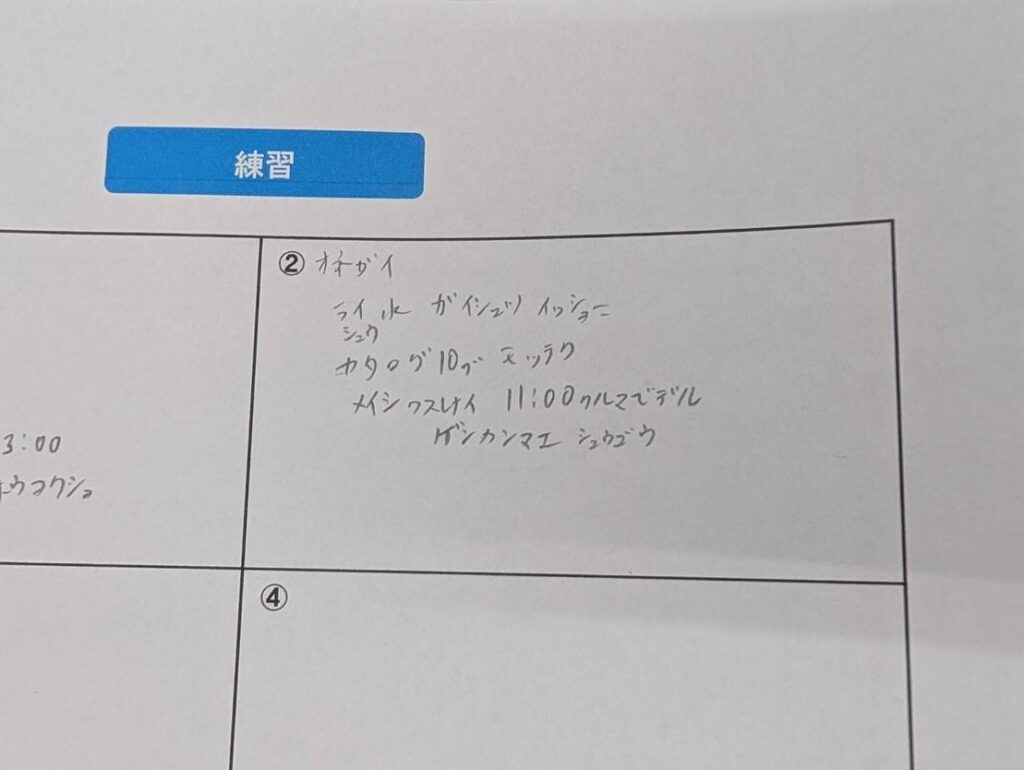 練習
② オネガイ
ライ水 ガイシュツ イッショニ
シュウ
カタログ10ブ モッテク
メイシ ワスレナイ 11:00 クルマでデル
ゲンカンマエ シュウゴウ
3:00
ホウコクショ
④